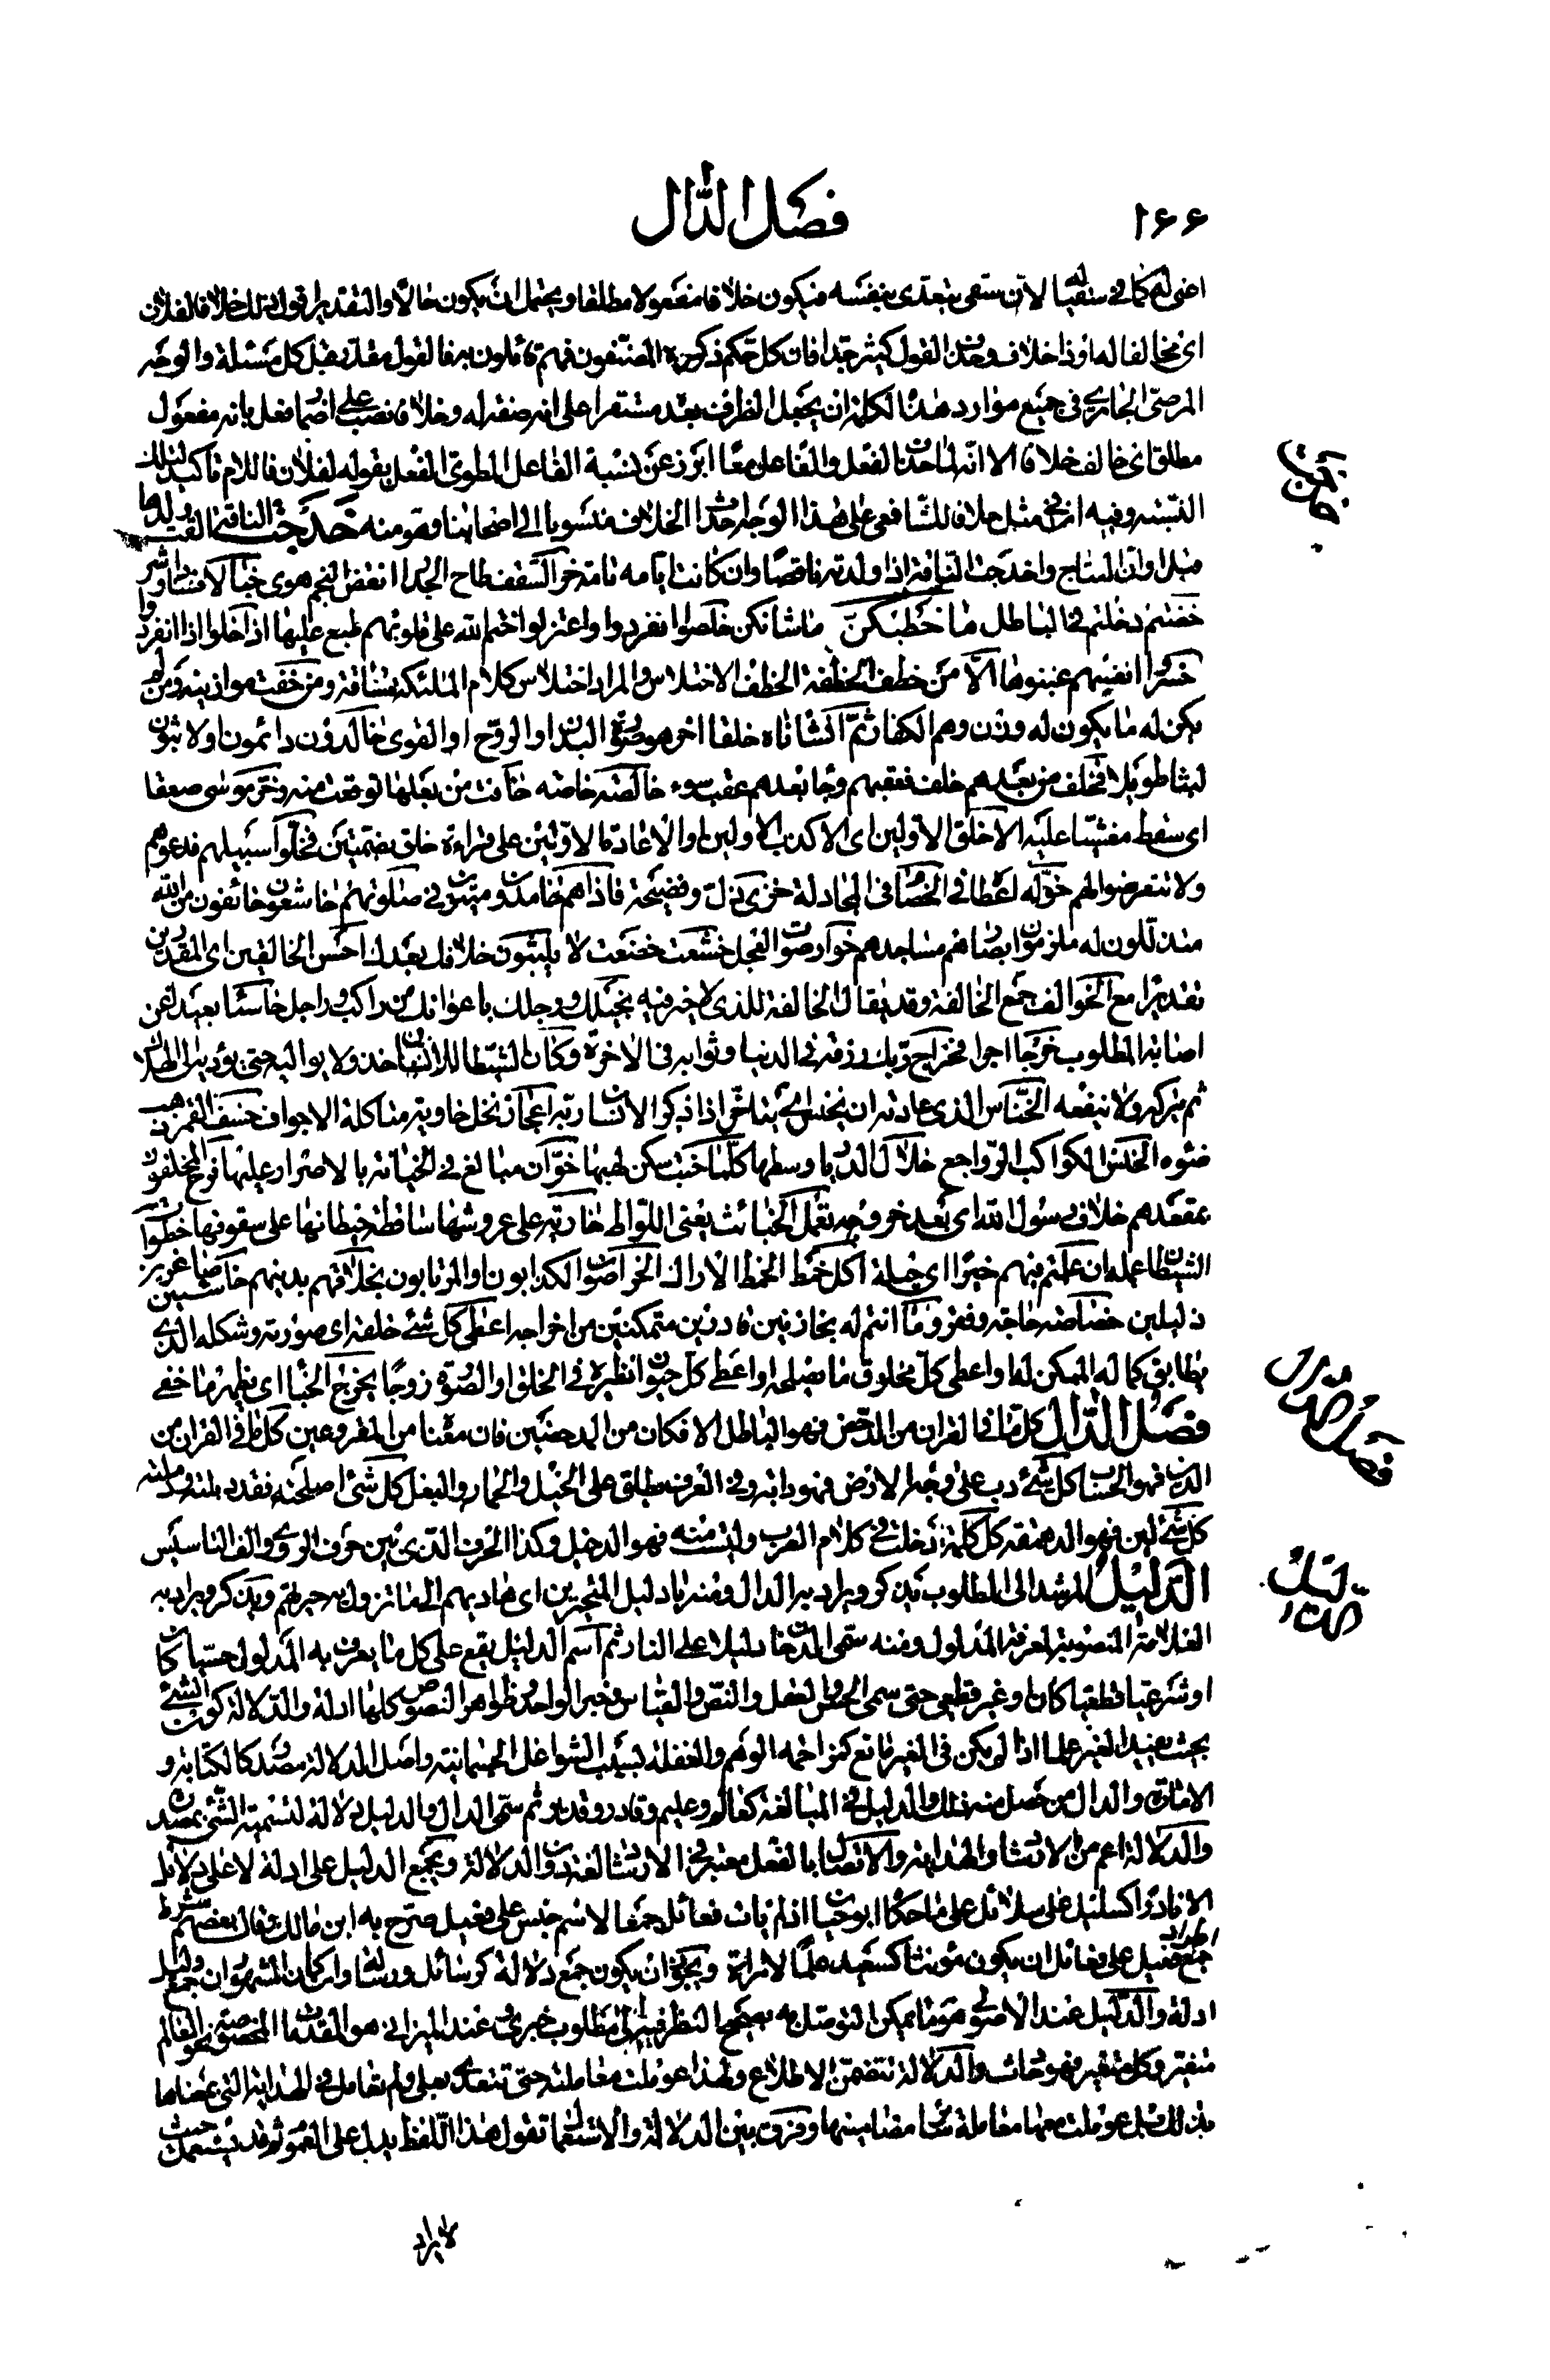 ١٦٦
فصل الدال
اعنى له كما فى سقيا له لان سقى يتعدى بنفسه فيكون خلافا مفعولا مطلقا ويحتمل ان يكون حالا والتقدير اقول ذلك خلافا لفلان
اى مخالفا له او ذا خلاف وحذف القول كثير جدا فان كل حكم ذكره المصنفون فهم قائلون به فالقول مقدر قبل كل مسئلة والوجه
المرضى الجارى فى جميع موارد هذه الكلمة ان يجعل الظرف بعد مستقرا على انه صفة له وخلافا نصب على اضمار فعل بانه مفعول
مطلق اى خالف خلافا الا انه لما حذف الفعل والفاعل معا ابرز عن نسبة الفاعل المطوى الفعل بقوله لفلان فاللام تأكيد لتلك
النسبة وفيه انه فى مثل خلافا للشافعى على هذا الوجه حذف الخلاف منسوبا الى اصحابنا وهو منه خدجت الناقة القت ولدها
قبل اوان النتاج واخدجت الناقة اذا ولدته ناقصا وان كانت ايامه تامة خر السقف طاح الجدار انقض النجم هوى خبالا فسادا وشرا
خضتم دخلتم فى الباطل ما خطبكن ما شأنكن خلصوا انفردوا واعتزلوا ختم الله على قلوبهم طبع عليها اذا خلوا اذا انفردوا
خسروا انفسهم غبنوها الا من خطف الخطفة الخطف الاختلاس والمراد اختلاس كلام الملئكة مسارقة ومن خفت موازينه ومن لم
يكن له ما يكون له وزن وهم الكفار ثم انشأناه خلقا اخر هو صورة البدن او الروح او القوى خالدون دائمون او لابثون
لبثا طويلا فخلف من بعدهم خلف فعقبهم وجا بعدهم عقب سوء خالصة خاصة خافت من بعلها توقعت منه وخر موسى صعقا
اى سقط مغشيا عليه الا خلق الاولين اى الا كذب الاولين او الا عادة الاولين على قراءة خلق بضمتين فخلوا سبيلهم فدعوهم
ولا تتعرضوا لهم خوله اعطاه فى الخصام فى المجادلة خزى ذل وفضيحة فاذا هم خامدون ميتون فى صلوتهم خاشعون خائفون من الله
متذللون له ملزمون ابصارهم مساجدهم خوار صوت العجل خشعت خضعت لا يلبثون خلافك بعدك احسن الخالقين اى المقدرين
تقديرا مع الخوالف جمع الخالفة وقد يقال الخالفة للذى لا خير فيه بخيلك ورجلك باعوانك من راكب وراجل خاسئا بعيدا عن
اصابة المطلوب خرجا اجرا فخراج ربك رزقه فى الدنيا وثوابه فى الاخرة وكان الشيطان للانسان خذولا يواليه حتى يؤديه الى الهلاك
ثم يتركه ولا ينفعه الخناس الذى عادته ان يخنس اى يتأخر اذا ذكر الانسان ربه اعجاز نخل خاوية متأكلة الاجواف خسف القمر ذهب
ضوءه الخنس الكواكب الرواجع خلال الديار وسطها كلما خبت سكن لهبها خوان مبالغ فى الخيانة بالاصرار عليها فرح المخلفون
بمقعدهم خلاف رسول الله اى بعد خروجه تعمل الخبائث يعنى اللواط خاوية على عروشها ساقطة حيطانها على سقوفها خطوات
الشيطان عمله ان علمتم فيهم خيرا اى حيلة اكل خمط الخمط الاراك الخراصون الكذابون والمرتابون بخلاقهم بدينهم خاسئين
ذليلين خصاصة حاجة وفقر وما انتم له بخازنين قادرين متمكنين من اخراجه اعطى كل شئ خلقه اى صورته وشكله الذى
يطابق كماله الممكن له او اعطى كل مخلوق ما يصلحه او اعطى كل حيوان نظيره فى الخلق او الصورة زوجا يخرج الخبأ اى يظهر ما خفى
فصل الدال كل ما فى القران من الدحض فهو الباطل الا فكان من المدحضين فان معناه من المقروعين كل ما فى القران من
الدين فهو الحساب كل شئ دب على وجه الارض فهو دابة وفى العرف يطلق على الخيل والحمار والبغل كل شئ اصلحته فقد دملته
كل شئ لين فهو الدمقة كل كلمة ادخلت فى كلام العرب وليست منه فهو الدخيل وكذا الحرف الذى بين حرف الروى والف التأسيس
الدليل المرشد الى المطلوب يذكر ويراد به الدال ومنه يا دليل المتحيرين اى هاديهم الى ما تزول به حيرتهم ويذكر ويراد به
العلامة المنصوبة لمعرفة المدلول ومنه سمى الدخان دليلا على النار ثم اسم الدليل يقع على كل ما يعرف به المدلول حسيا كان
او شرعيا قطعيا كان او غير قطعى حتى سمى الحس والعقل والنص والقياس وخبر الواحد وظواهر النصوص كلها ادلة والدلالة كون الشئ
بحيث يفيد الغير علما اذا لم يكن فى الغير مانع كمزاحمة الوهم والغفلة بسبب الشواغل الجسمانية واصل الدلالة مصدر كالكتابة و
الامارة والدال من حصل منه ذلك والدليل فى المبالغة كعالم وعليم وقادر وقدير ثم سمى الدال والدليل دلالة لتسمية الشئ بمصدره
والدلالة اعم من الارشاد والهداية والاتصال بالفعل معتبر فى الارشاد لغة دون الدلالة ويجمع الدليل على ادلة لا على دلائل
الا نادرا كسليل على سلائل على ما حكاه ابو حيان اذ لم يات فعائل جمعا لاسم جنس على فعيل صرح به ابن مالك وقال بعضهم شرط
اطراد جمع فعيل على فعائل ان يكون مؤنثا كسعيد علما لامرأة ويجوز ان يكون جمع دلالة كرسائل ورسالة وان كان المشهور ان جمع دليل
ادلة والدليل عند الاصولى هو ما يمكن التوصل به بصحيح النظر فيه الى مطلوب خبرى وعند الميزانى هو المقدمات المخصوصة نحو العالم
متغير وكل متغير فهو حادث والدلالة تتضمن الاطلاع ولهذا عوملت معاملته حتى تتعدى بعلى ولم تعامل فى الهداية التى بمعناها
بذلك بل عوملت معها معاملة سائر مضامينها وفرق بين الدلالة والاستعمال تقول هذا اللفظ يدل على العموم ثم قد يستعمل حيث
لا يراد
فصل الدال